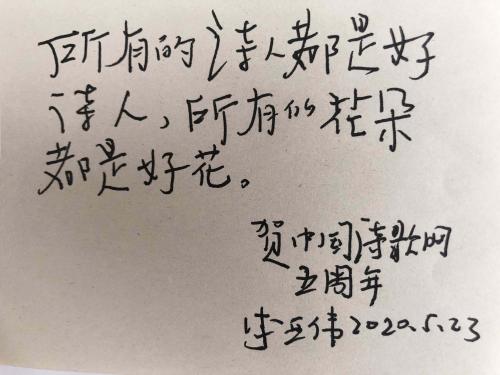 所有的诗人都是好
诗人，所有的花朵
都是好花。
贺中国诗歌网
五周年
李亚伟 2020.5.23